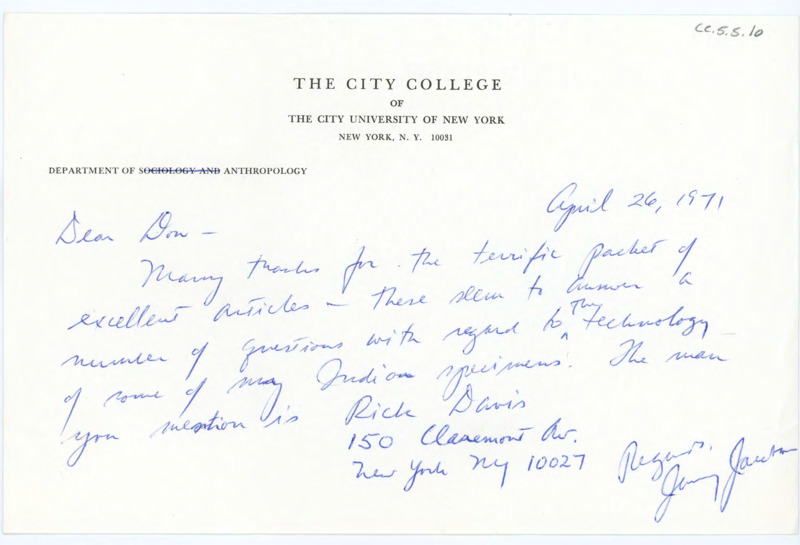 CC.5.5.10
THE CITY COLLEGE
OF
THE CITY UNIVERSITY OF NEW YORK
NEW YORK, N. Y. 10031
DEPARTMENT OF SOCIOLOGY AND ANTHROPOLOGY
April 26, 1971
Dear Don —
Many thanks for the terrific packet of
excellent articles — these seem to answer a
number of questions with regard to the technology
of some of my Indian specimens. The man
you mention is Rick Davis
150 Claremont Av.
New York NY 10027
Regards,
Jerry